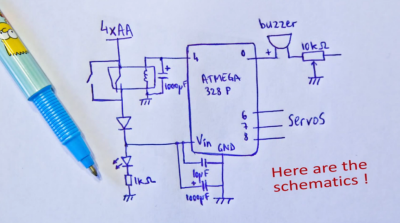 buzzer
4xAA
10kΩ
4
0
+
+
1000µF
ATMEGA
328 P
6
7
8
Servos
Vin
GND
1kΩ
10µF
+
1000µF
Here are the
schematics !